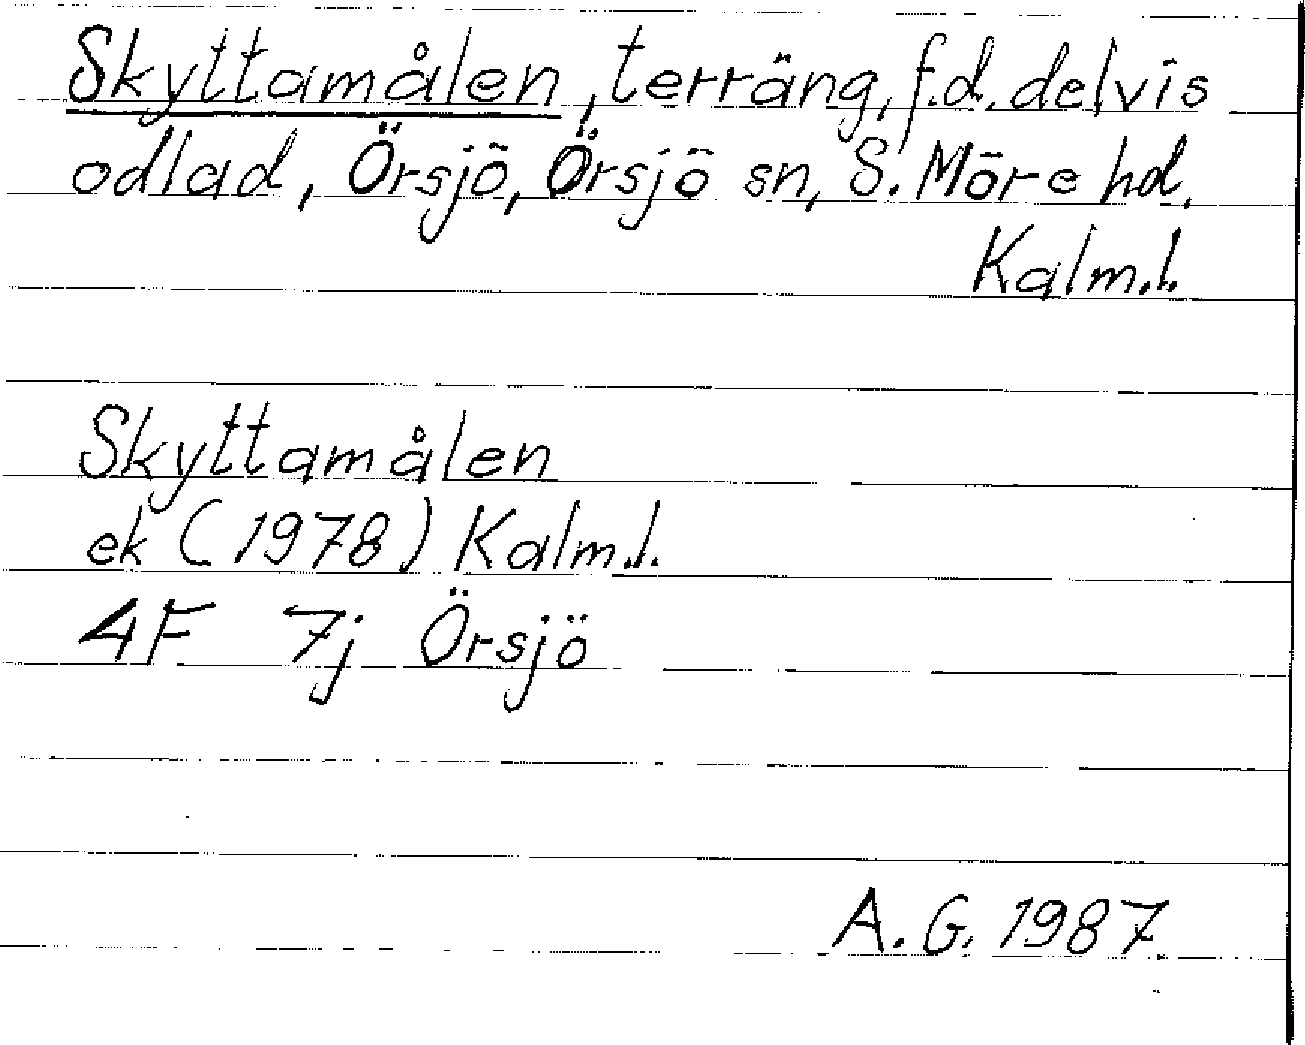 Skyttamålen, terräng, f.d. delvis
odlad, Örsjö, Örsjö sn, S. Möre hd,
Kalm.l.
Skyttamålen
ek (1978) Kalm.l.
4F 7j Örsjö
A.G. 1987.